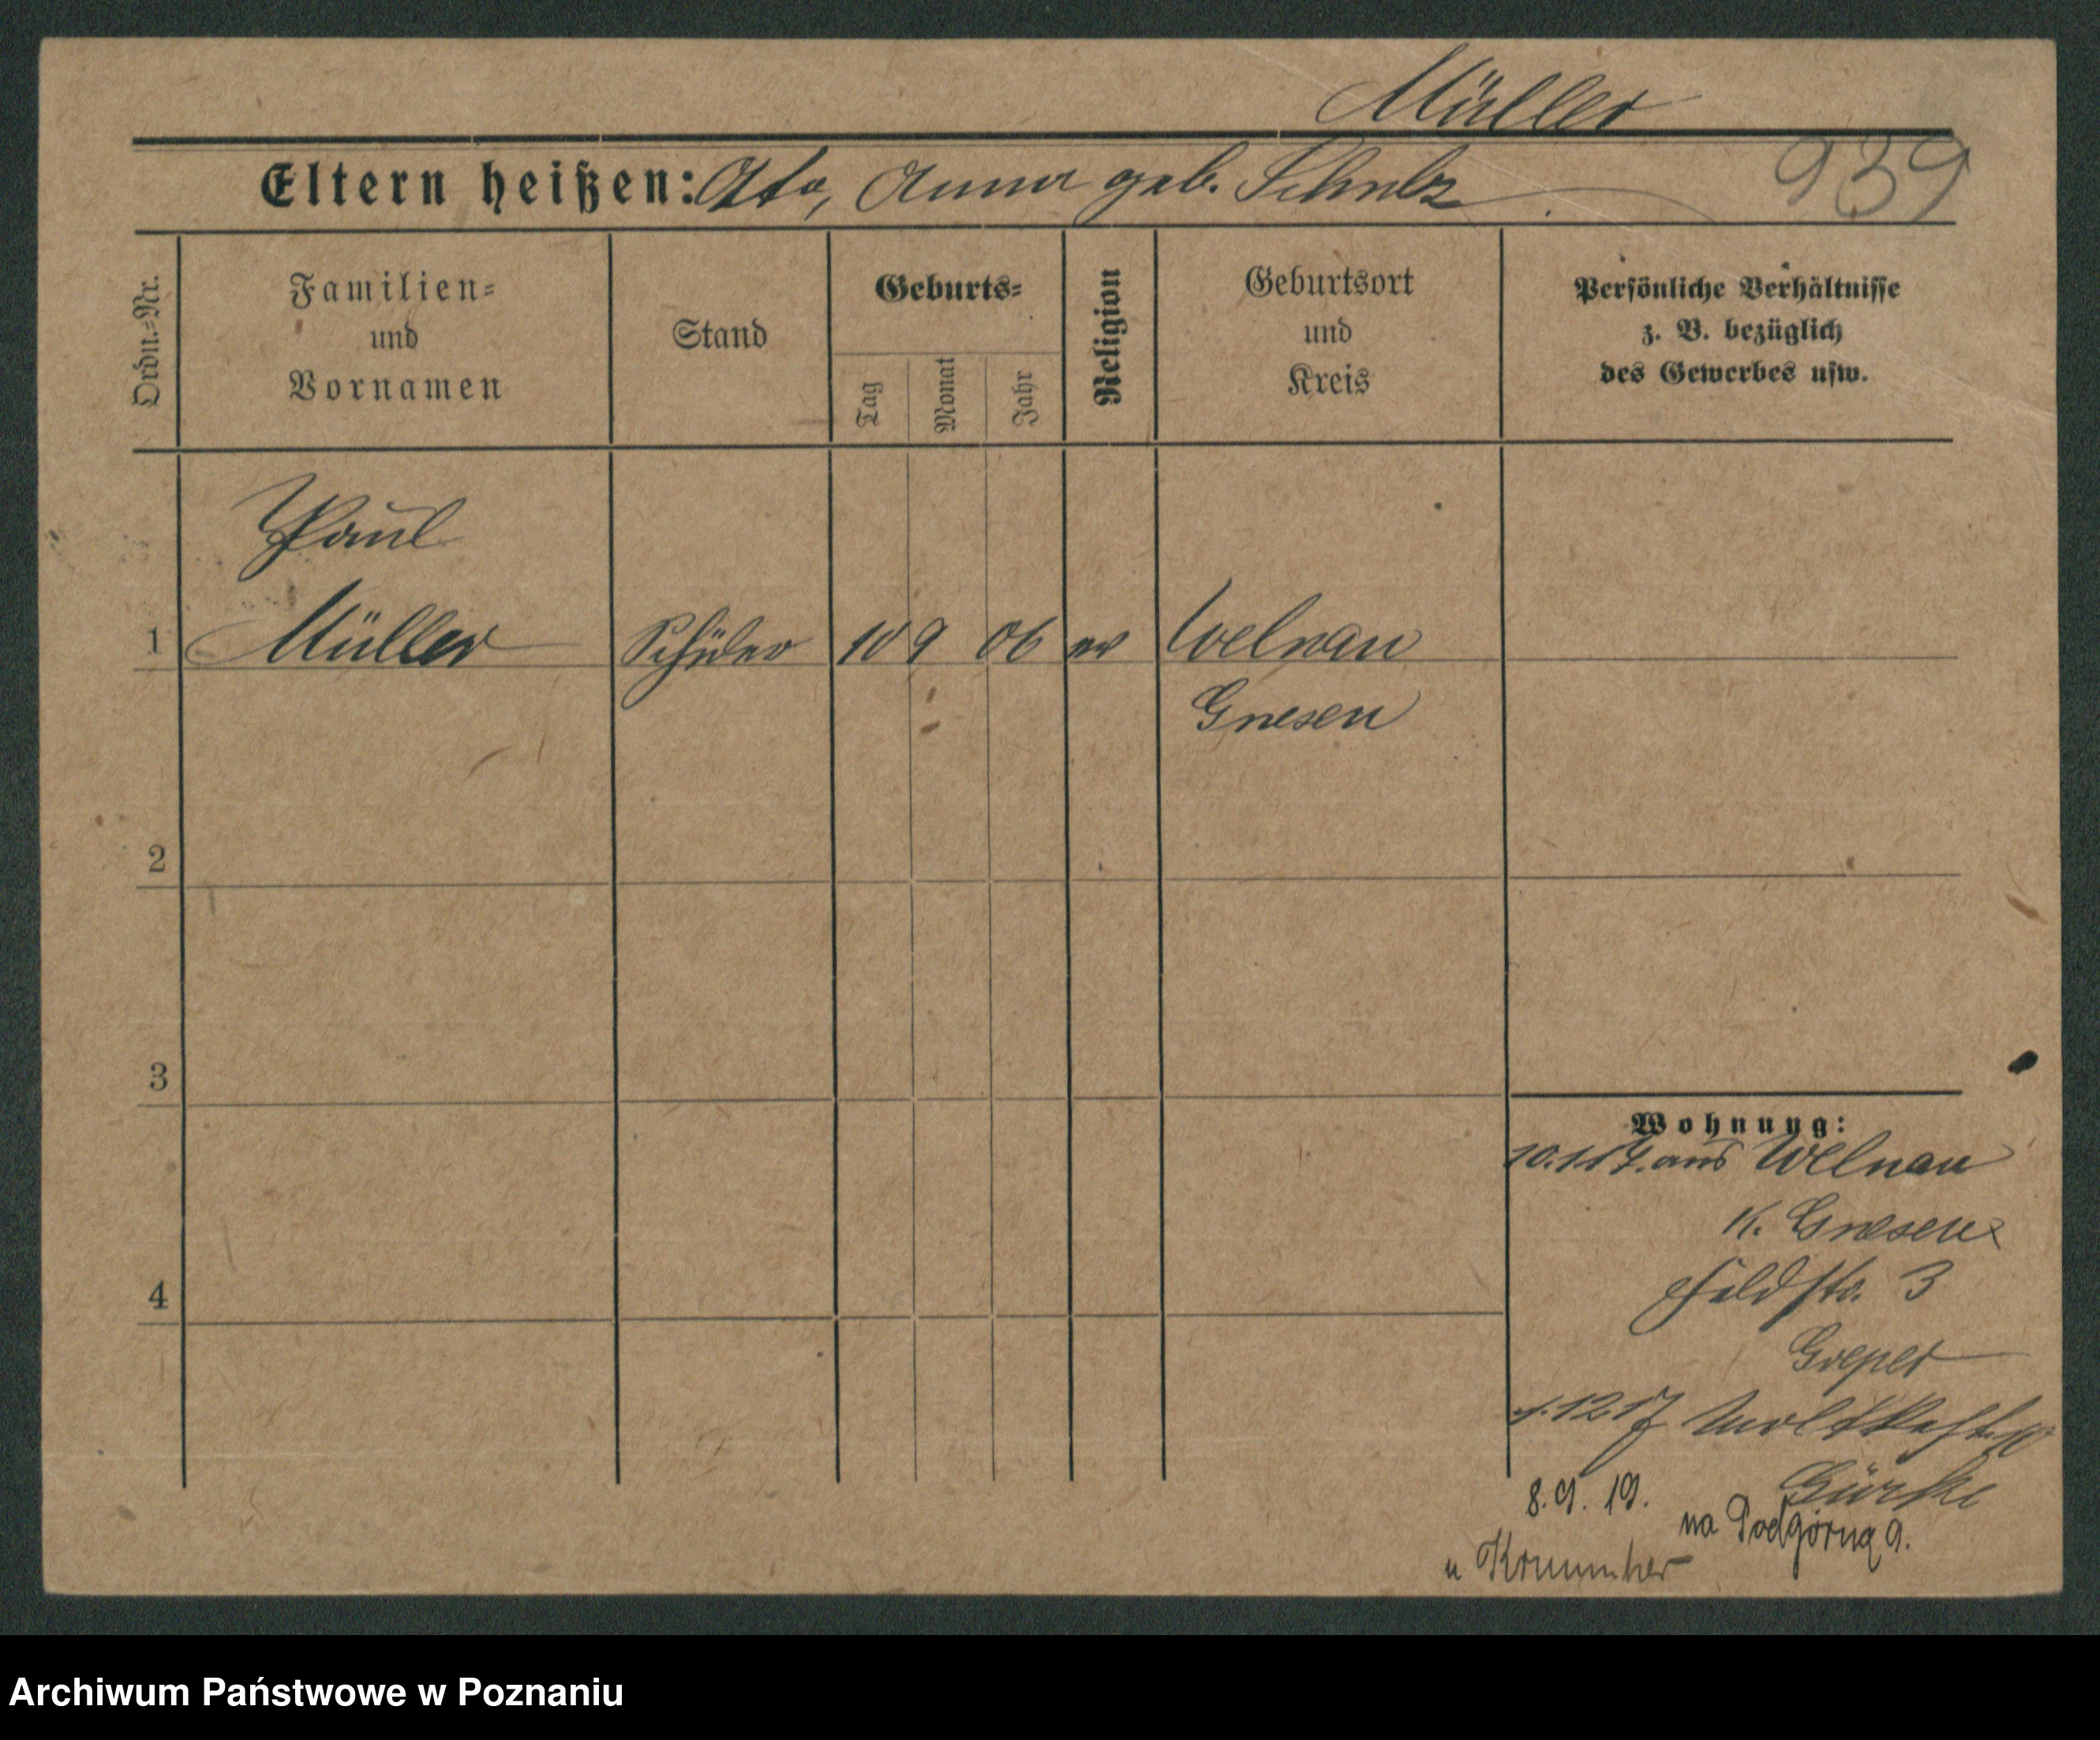 Müller
Eltern heißen: Otto, Anna geb. Schulz
939
Ordn.=Nr.
Familien=
und
Vornamen
Stand
Geburts=
Tag
Monat
Jahr
Religion
Geburtsort
und
Kreis
Persönliche Verhältnisse
z. B. bezüglich
des Gewerbes usw.
Paul
1 Müller Schüler 10 9 06 ev Welnau
Gnesen
2
3
4
Wohnung:
aus Welnau
K. Gnesen
Feldstr. 3
12 17 Moltkestr.
8. 9. 19. na Podgórną 9.
u
Archiwum Państwowe w Poznaniu